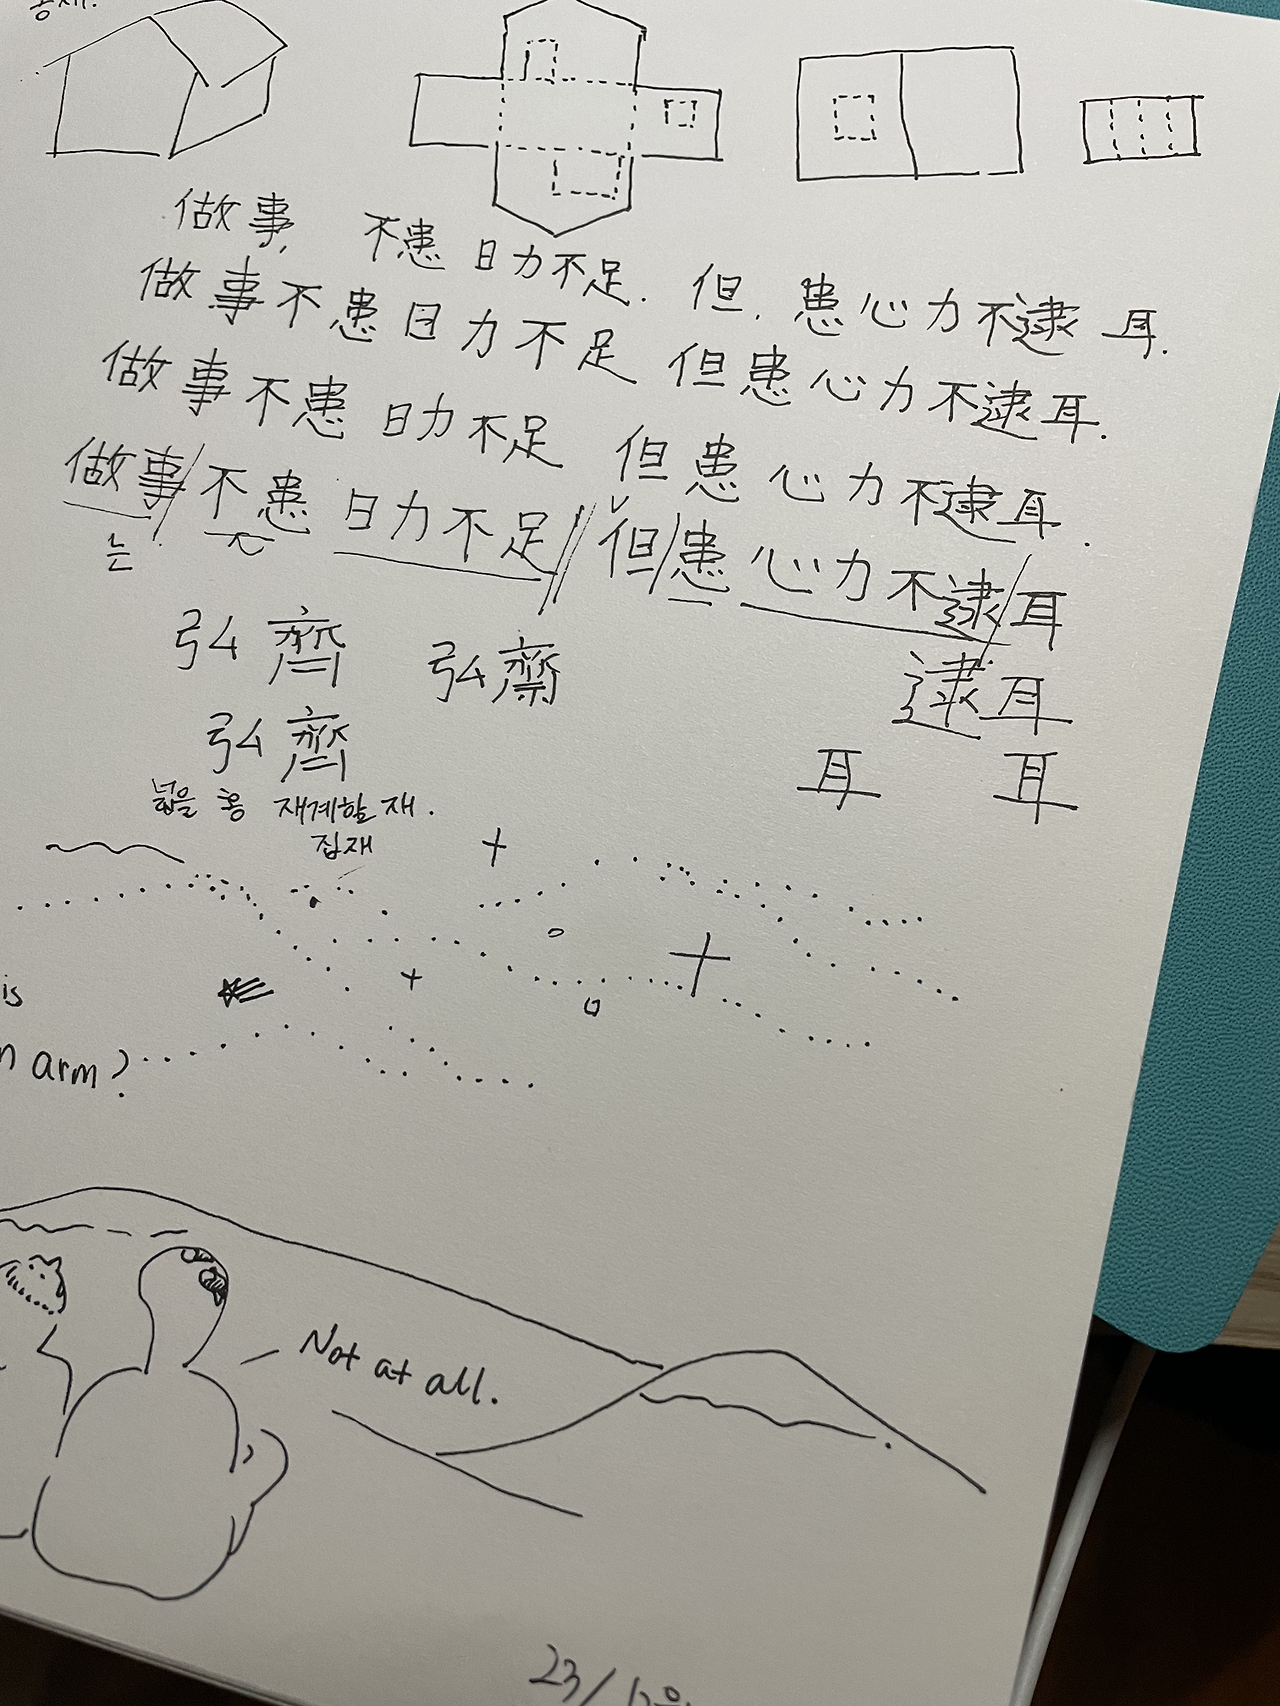 홍재.
做事, 不患 日力不足. 但, 患心力不逮 耳.
做事不患日力不足 但患心力不逮耳.
做事不患 日力不足 但患心力不逮耳.
做事/不患 日力不足//但/患 心力不逮/耳
는
逮耳
弘齊 弘齋
弘齊
耳 耳
넓을 홍 재계할 재.
집재
is
arm?
Not at all.
23/12월